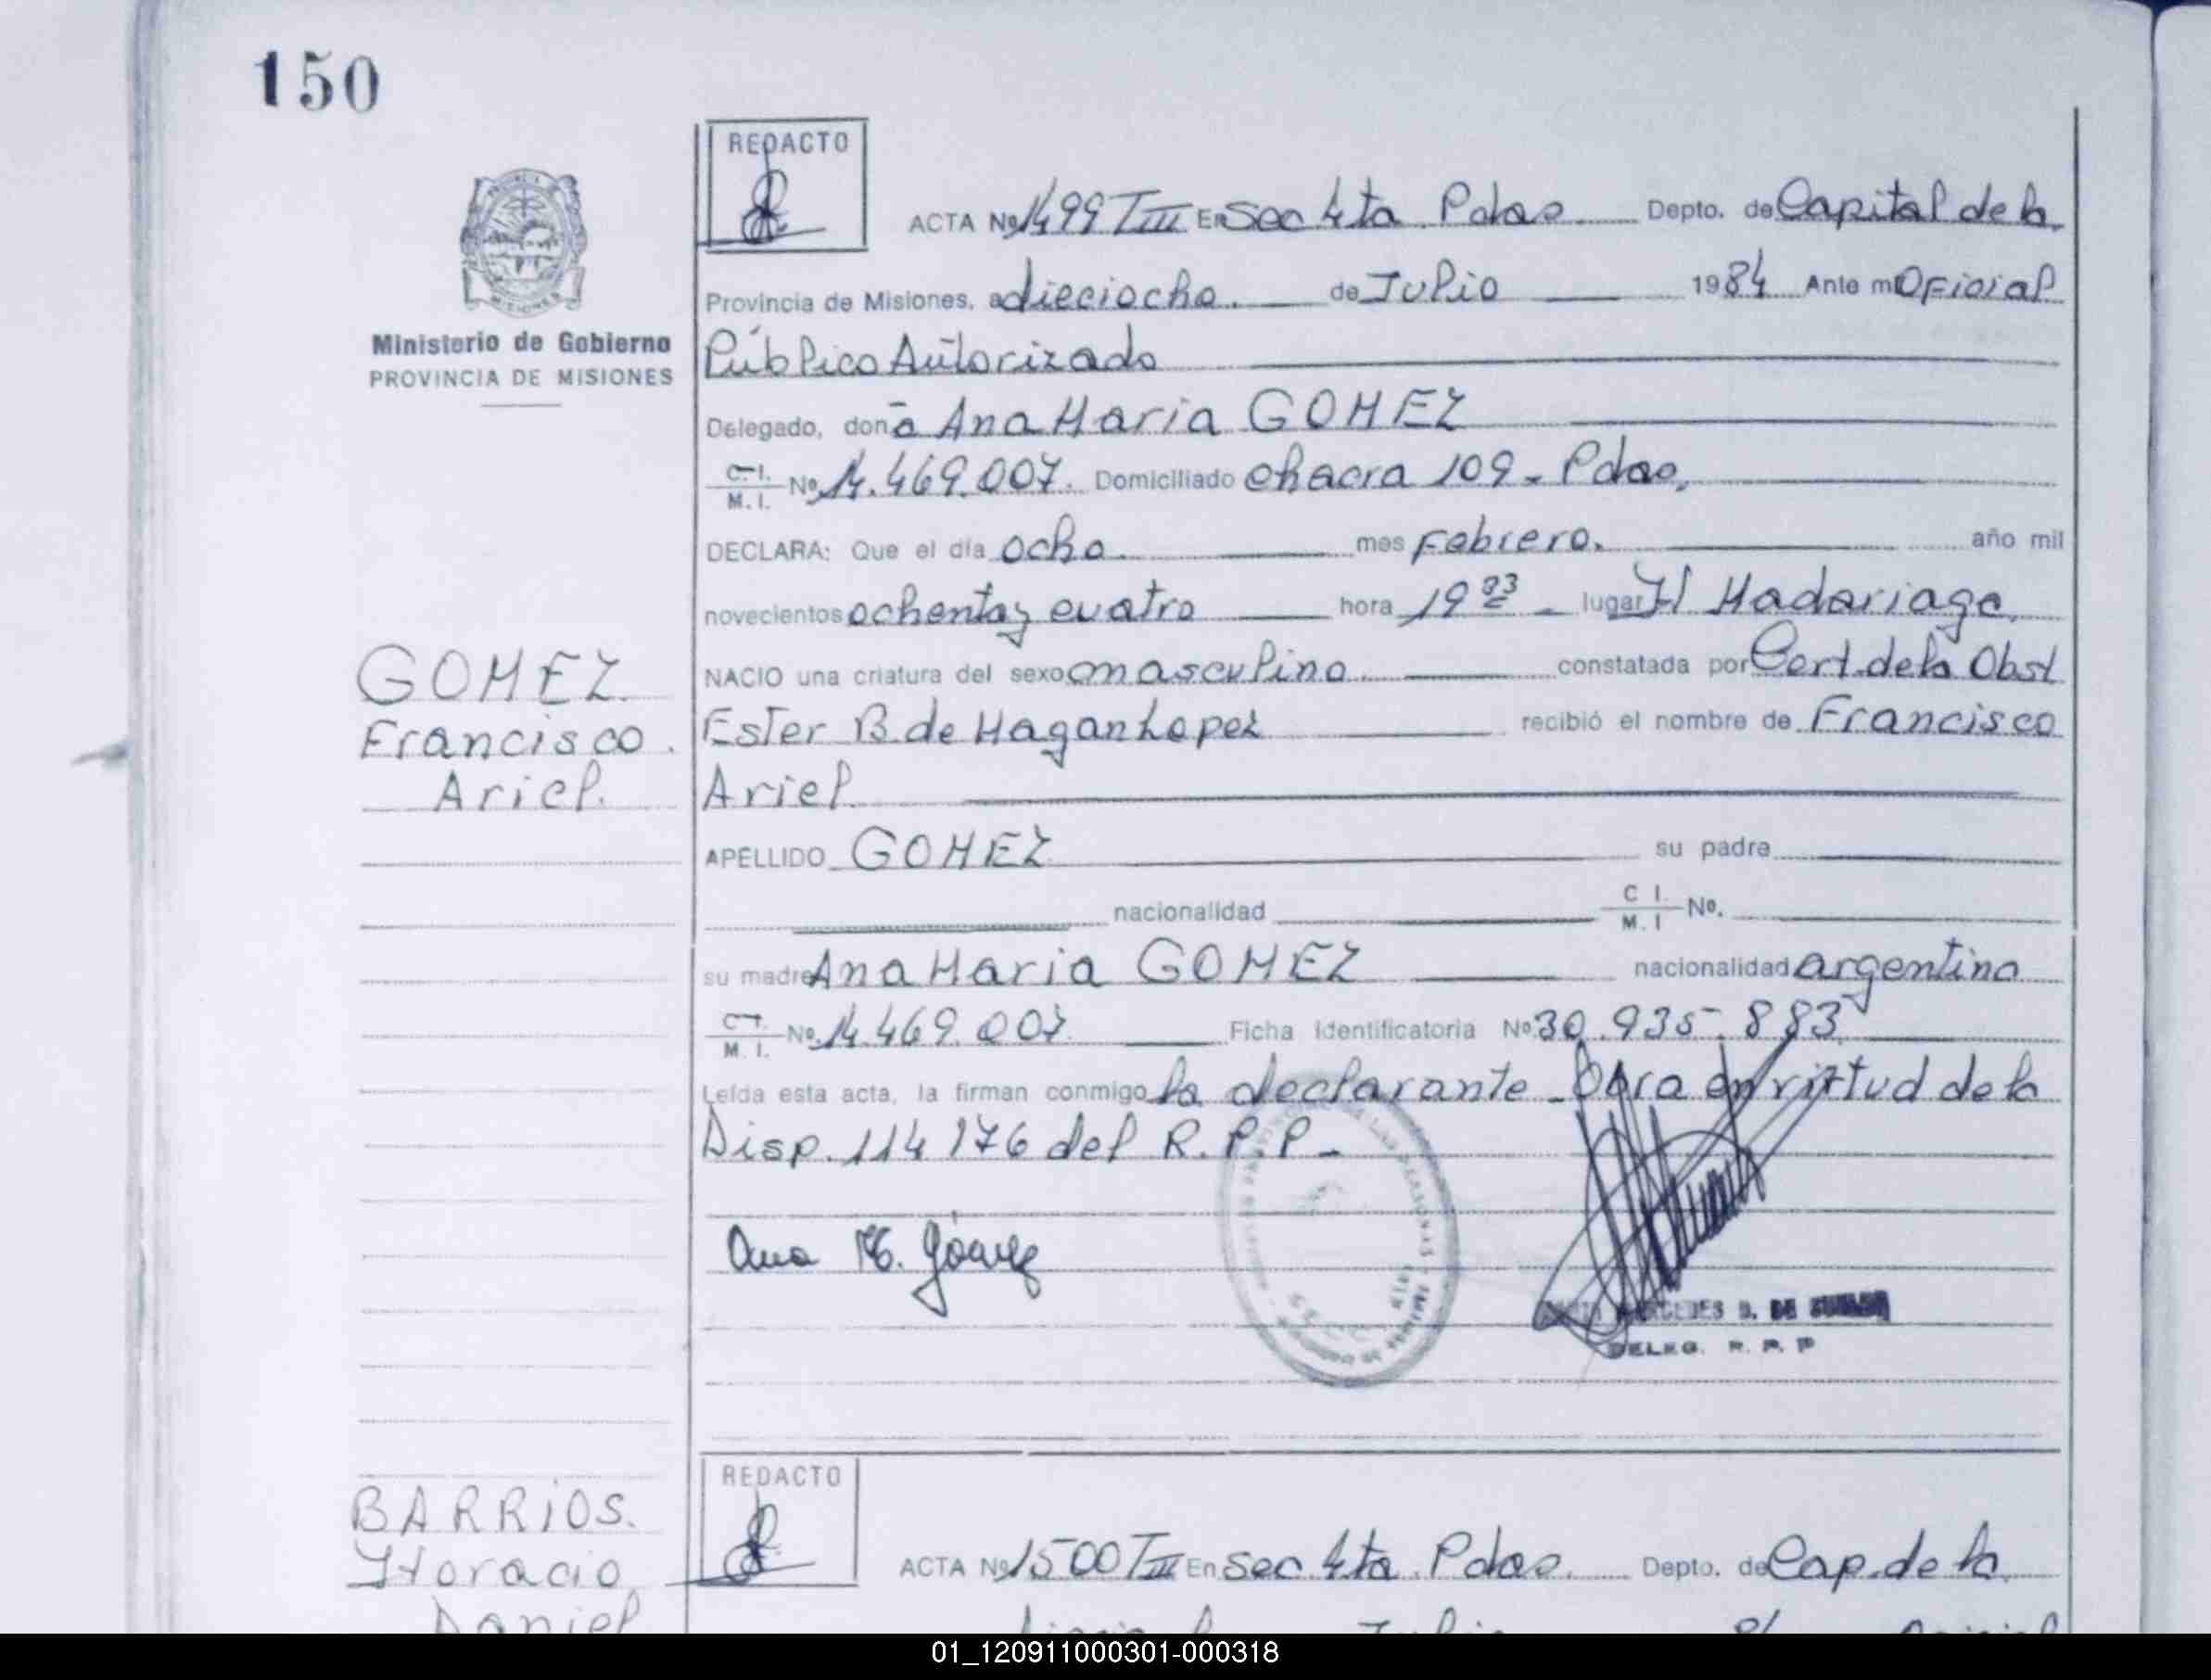 150
REDACTO
ACTA Nº 1499 TIII En Sec 4ta Pdas Depto. de Capital de la
Provincia de Misiones, a dieciocho. de Julio 1984 Ante mi Oficial
Ministerio de Gobierno
PROVINCIA DE MISIONES
Público Autorizado
Delegado, doña Ana Maria GOMEZ
C.I. M.I. Nº 14.469.007. Domiciliado chacra 109 - Pdas,
DECLARA: Que el día ocho mes Febrero. año mil
novecientos ochenta y cuatro hora 19 lugar H Madariaga,
GOMEZ.
NACIO una criatura del sexo masculino. constatada por Cert. de la Obst
Francisco.
Ester B de Magan Lopez recibió el nombre de Francisco
Ariel.
Ariel
APELLIDO GOMEZ su padre
nacionalidad C I. M. I Nº.
su madre Ana Maria GOMEZ nacionalidad argentina
C.I. M. I. Nº 14.469.007. Ficha Identificatoria Nº 30.935.883
Leída esta acta, la firman conmigo la declarante - Obra en virtud de la
Disp. 114/76 del R.P.P. -
Ana M. Gómez
MERCEDES D. DE
DELEG. R. P. P
BARRIOS.
Horacio
Daniel
REDACTO
ACTA Nº 1500 TIII En Sec. 4ta. Pdas. Depto. de Cap. de la
01_120911000301-000318